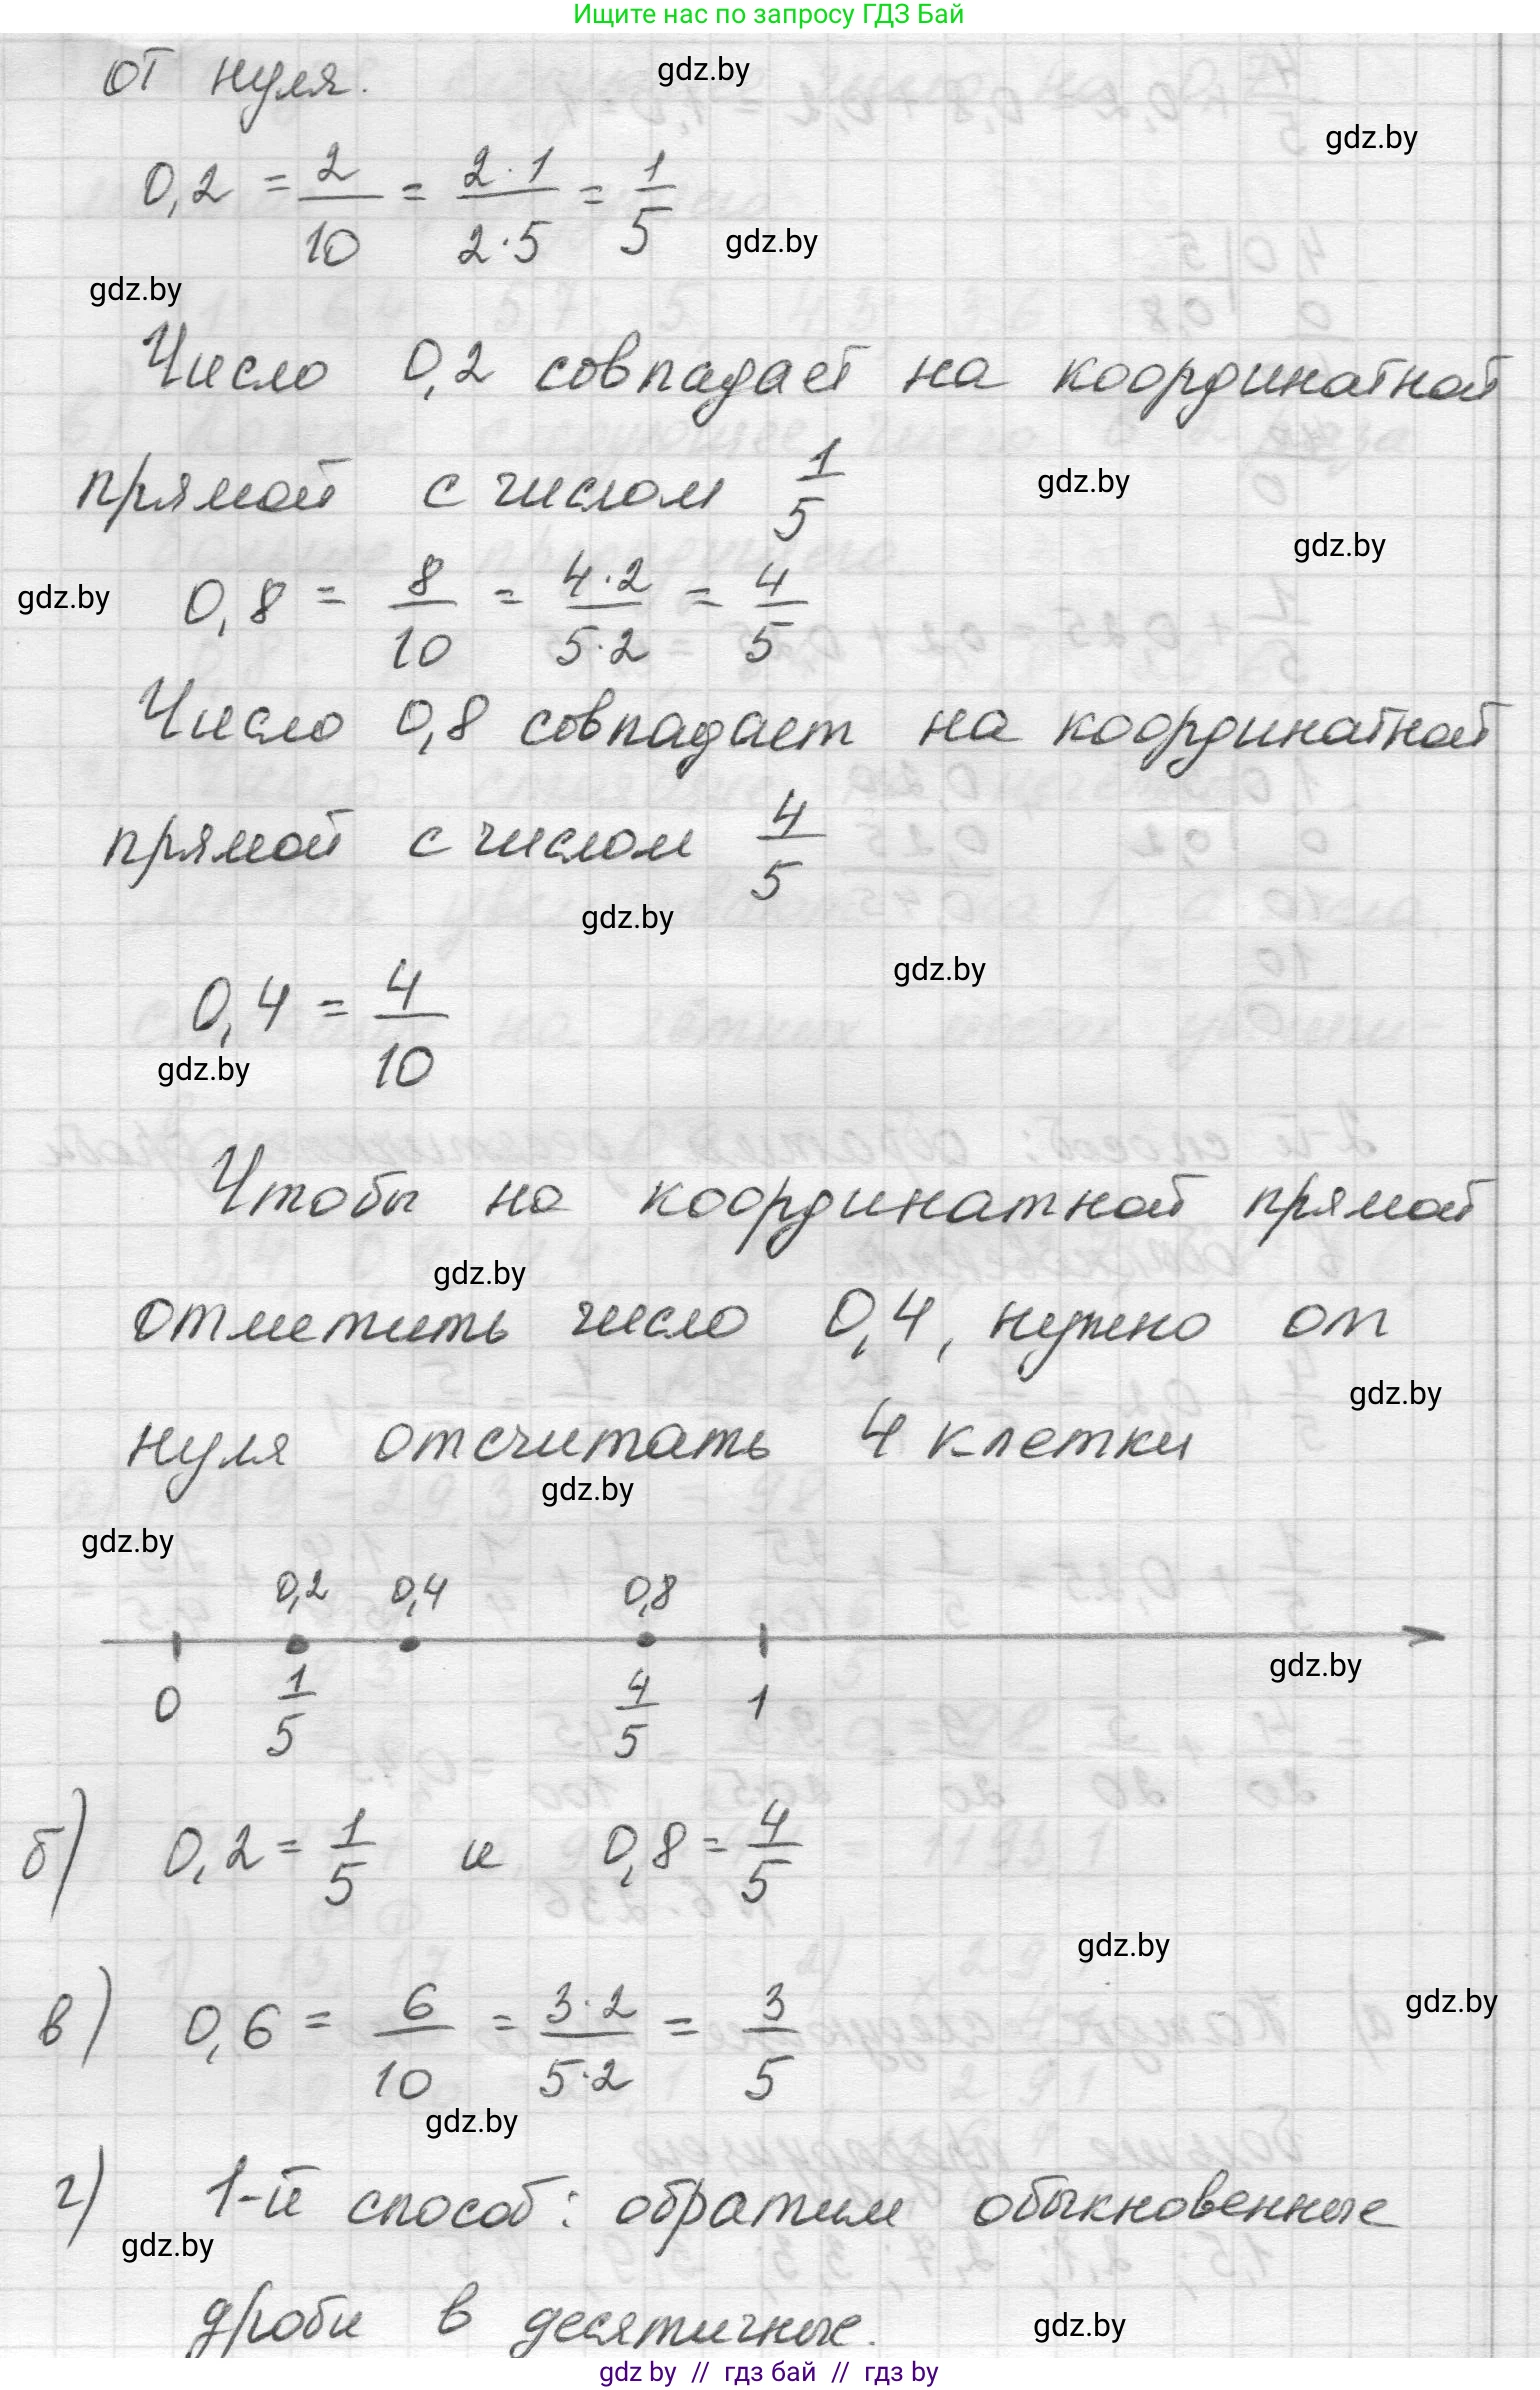 Ищите нас по запросу ГДЗ Бай
от нуля.
gdz.by
gdz.by
0,2 = 2/10 = 2·1/2·5 = 1/5
gdz.by
gdz.by
Число 0,2 совпадает на координатной
прямой с числом 1/5
gdz.by
gdz.by
gdz.by
0,8 = 8/10 = 4·2/5·2 = 4/5
Число 0,8 совпадает на координатной
прямой с числом 4/5
gdz.by
gdz.by
0,4 = 4/10
gdz.by
Чтобы на координатной прямой
gdz.by
отметить число 0,4, нужно от
gdz.by
нуля отсчитать 4 клетки
gdz.by
gdz.by
0,2 0,4 0,8
gdz.by
0 1/5 4/5 1
б) 0,2 = 1/5 и 0,8 = 4/5
gdz.by
gdz.by
в) 0,6 = 6/10 = 3·2/5·2 = 3/5
gdz.by
г) 1-й способ: обратим обыкновенные
gdz.by
дроби в десятичные.
gdz.by
gdz by // гдз бай // гдз by